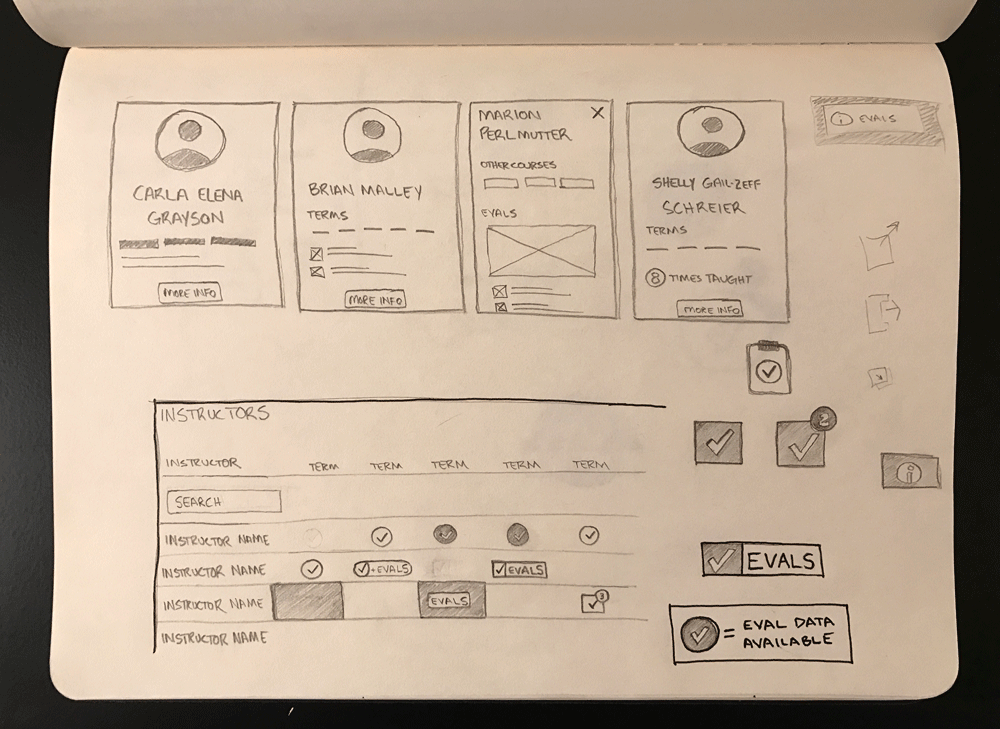 CARLA ELENA
GRAYSON
MORE INFO
BRIAN MALLEY
TERMS
MORE INFO
MARION
PERLMUTTER
X
OTHER COURSES
EVALS
SHELLY GAIL-ZEFF
SCHREIER
TERMS
8 TIMES TAUGHT
MORE INFO
i EVALS
INSTRUCTORS
INSTRUCTOR TERM TERM TERM TERM TERM
SEARCH
INSTRUCTOR NAME
INSTRUCTOR NAME +EVALS EVALS
INSTRUCTOR NAME EVALS 3
INSTRUCTOR NAME
2
i
EVALS
= EVAL DATA
AVAILABLE